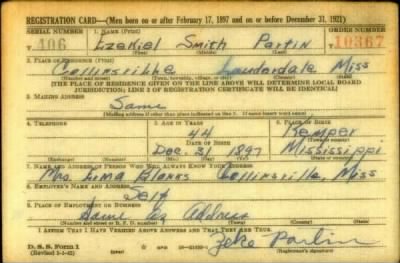 REGISTRATION CARD—(Men born on or after February 17, 1897 and on or before December 31, 1921)
SERIAL NUMBER
1. NAME (Print)
ORDER NUMBER
T 406
Ezekiel Smith Partin
T 10367
(First) (Middle) (Last)
2. PLACE OF RESIDENCE (Print)
Collinsville Lauderdale Miss
(Number and street) (Town, township, village, or city) (County) (State)
[THE PLACE OF RESIDENCE GIVEN ON THE LINE ABOVE WILL DETERMINE LOCAL BOARD
JURISDICTION; LINE 2 OF REGISTRATION CERTIFICATE WILL BE IDENTICAL]
3. MAILING ADDRESS
Same
[Mailing address if other than place indicated on line 2. If same insert word same]
4. TELEPHONE
5. AGE IN YEARS
6. PLACE OF BIRTH
44
Kemper
DATE OF BIRTH
(Town or county)
Dec 31 1897
Mississippi
(Exchange) (Number) (Mo.) (Day) (Yr.) (State or country)
7. NAME AND ADDRESS OF PERSON WHO WILL ALWAYS KNOW YOUR ADDRESS
Mrs Blanks Collinsville, Miss
8. EMPLOYER'S NAME AND ADDRESS
Self
9. PLACE OF EMPLOYMENT OR BUSINESS
Same as Address
(Number and street or R. F. D. number) (Town) (County) (State)
I AFFIRM THAT I HAVE VERIFIED ABOVE ANSWERS AND THAT THEY ARE TRUE.
D. S. S. Form 1
(Revised 1-1-42)
GPO
Zeke Partin
(Registrant's signature)